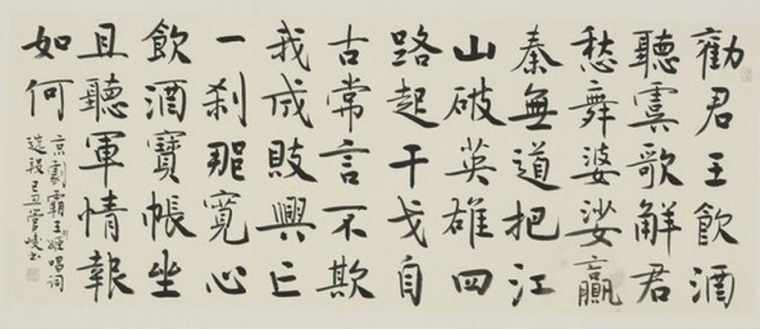 勸君王飲酒
聽虞歌解君
愁舞婆娑贏
秦無道把江
山破英雄四
路起干戈自
古常言不欺
我成敗興亡
一刹那寬心
飲酒寶帳坐
且聽軍情報
如何
京劇霸王别姬唱詞
選段己丑管峻书